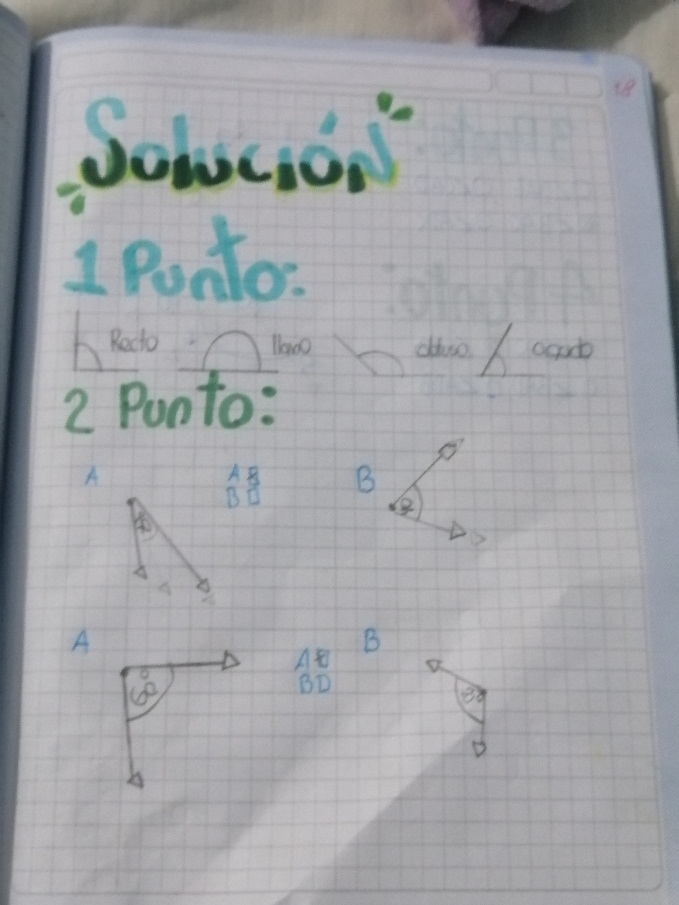 18
Solución
1 Punto:
Recto llano obtuso agudo
2 Punto:
A A B
B
A A B
B D